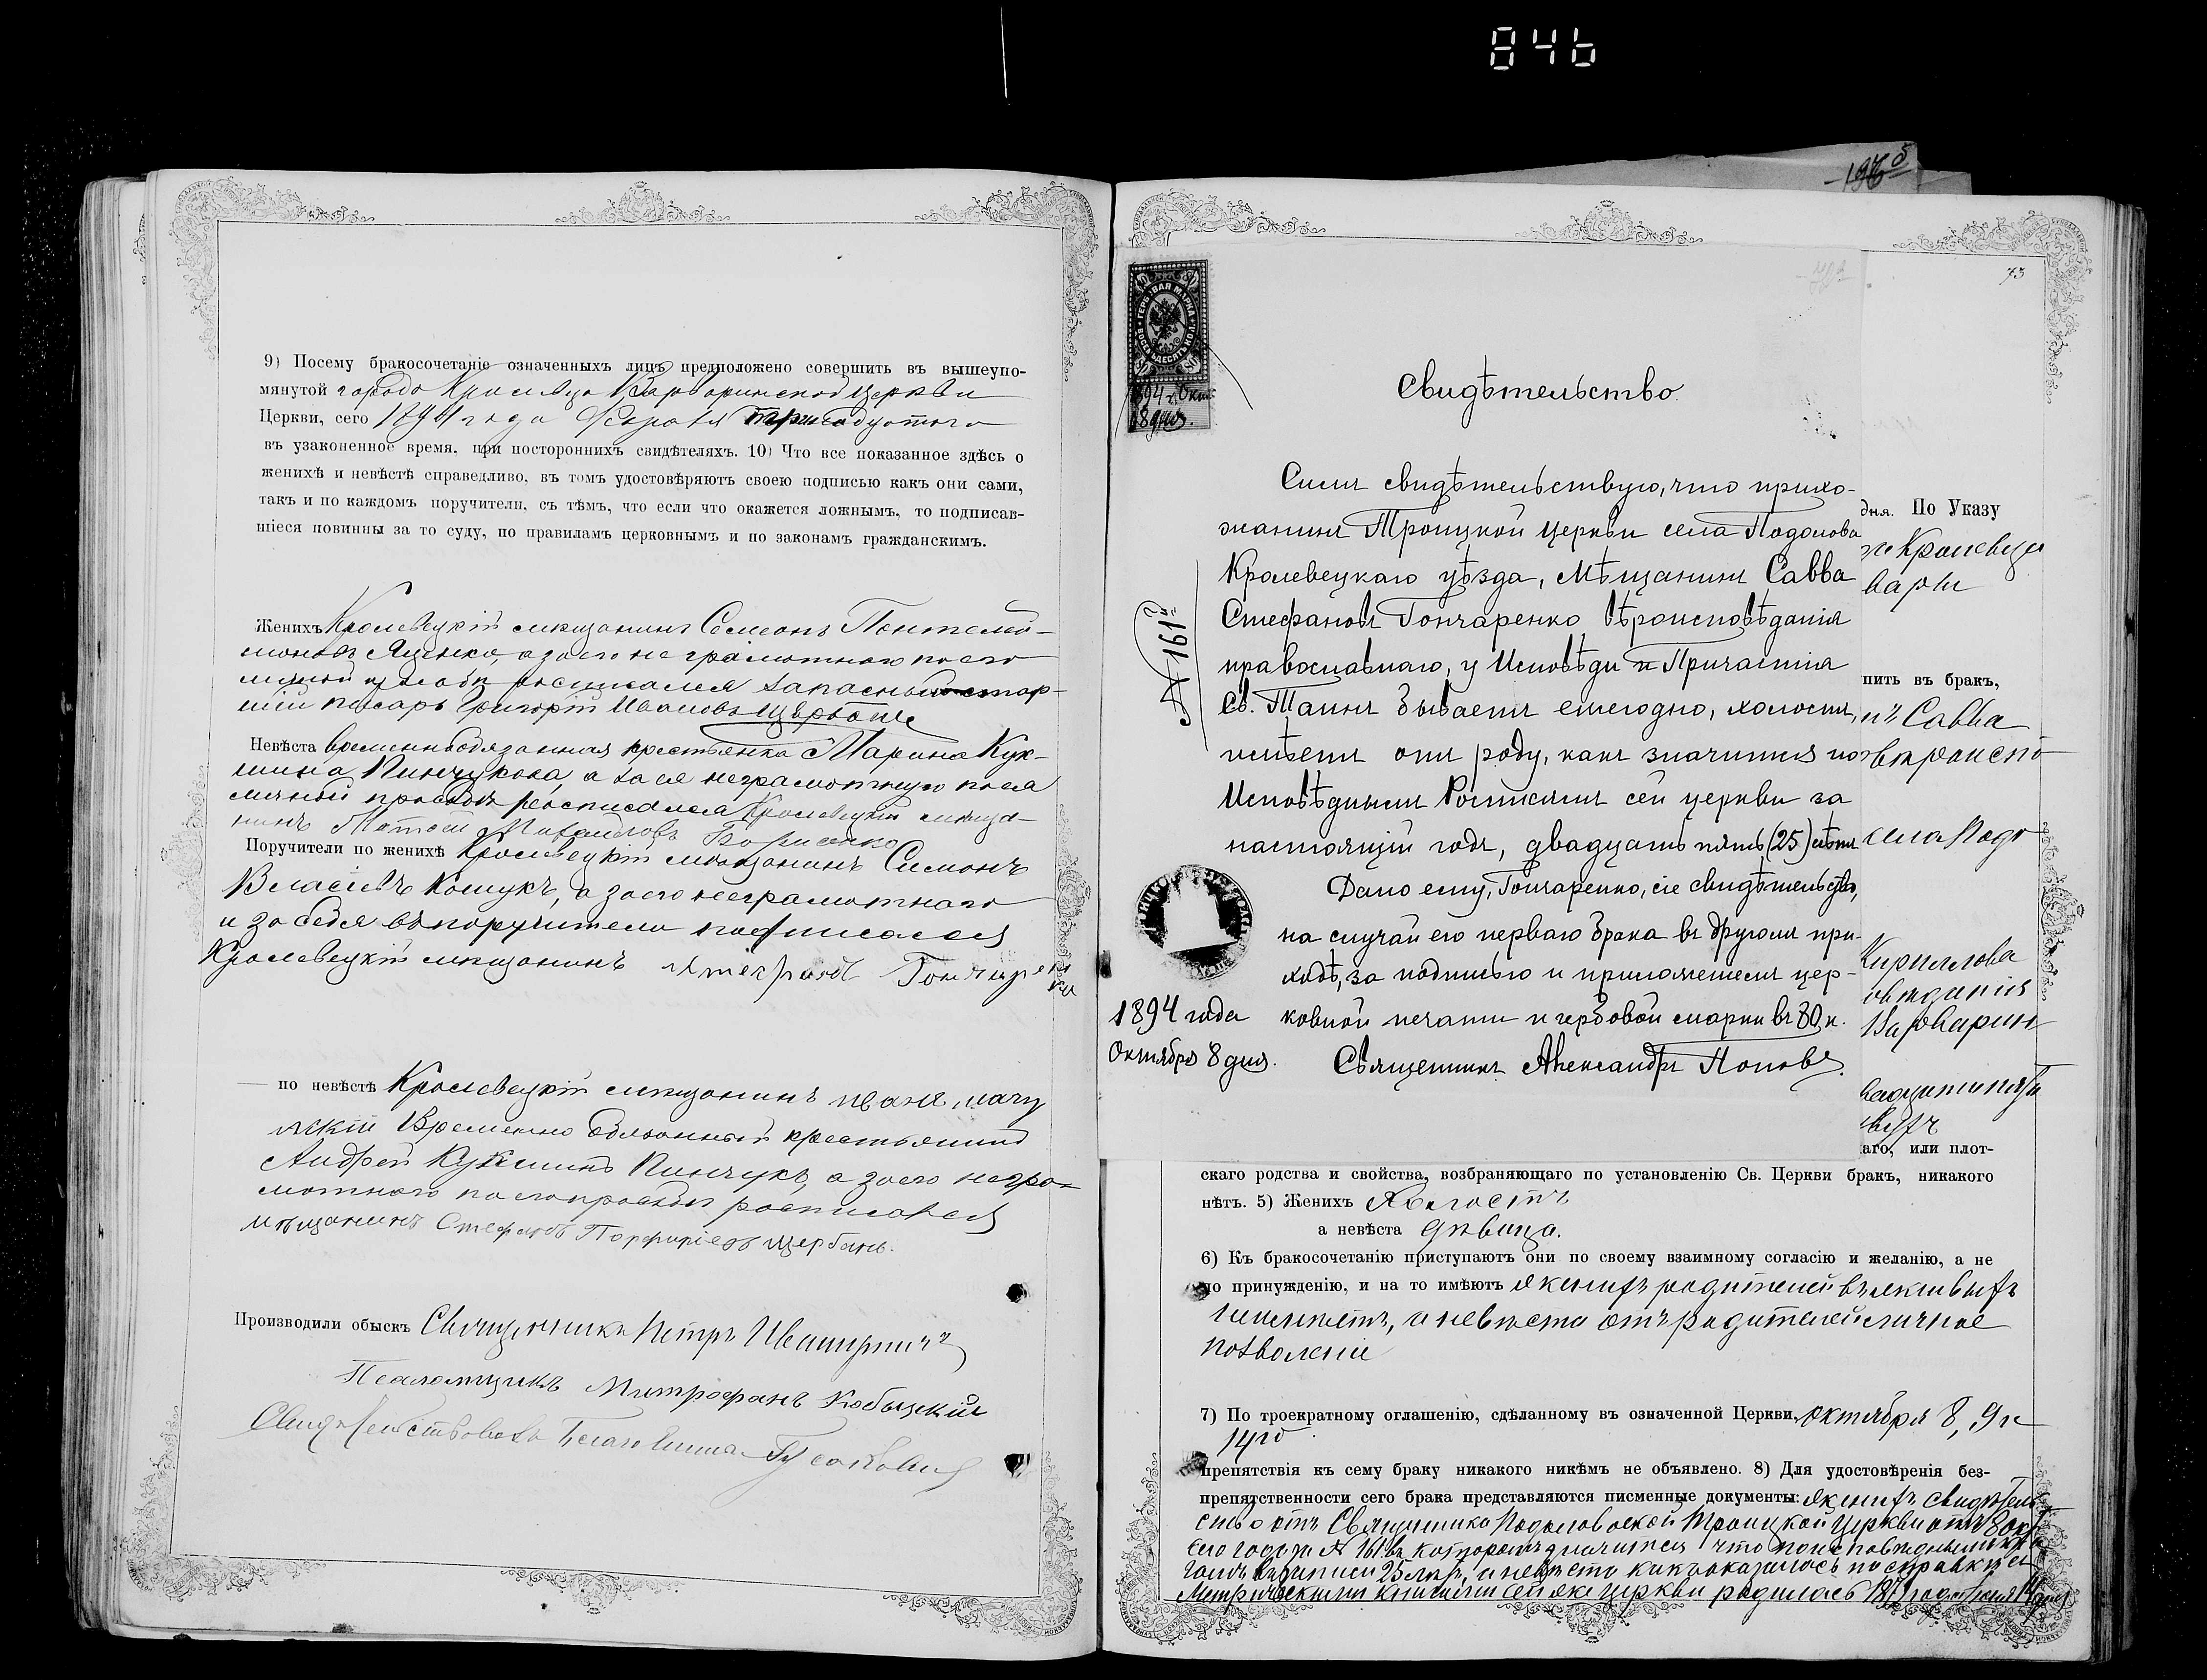 846
196 б
9) Посему бракосочетаніе означенныхъ лицъ предположено совершить въ вышеупо-
мянутой города Кролевца Варваринской церкви
Церкви, сего 1894 года Февраля тринадцатого
въ узаконенное время, при постороннихъ свидѣтеляхъ. 10) Что все показанное здѣсь о
женихѣ и невѣстѣ справедливо, въ томъ удостовѣряютъ своею подписью какъ они сами,
такъ и по каждомъ поручители, съ тѣмъ, что если что окажется ложнымъ, то подписав-
шіеся повинны за то суду, по правиламъ церковнымъ и по законамъ гражданскимъ.
Женихъ Кролевецкій мѣщанинъ Семеонъ Пантелей-
моновъ Яценко, а за его неграмотного по его
личной просьбѣ росписался запасный стар-
шій писарь Григорій Ивановъ Щербань
Невѣста временнообязанная крестьянка Марина Кук-
шина Пинчукова, а за ея неграмотную по ея
личной просьбѣ росписался Кролевецкій мѣща-
нинъ Михайловъ Борисенко
Поручители по женихѣ Кролевецкій мѣщанинъ Симонъ
Власіевъ Кошукъ, а за его неграмотнаго
и за себя въ поручители росписался
Кролевецкій мѣщанинъ Гончаренко
по невѣстѣ Кролевецкій мѣщанинъ
Временно обязанный крестьянинъ
Андрей Пинчукъ, а за его негра-
мотнаго по его просьбѣ росписался
мѣщанинъ Стефанъ Порфиріевъ Щербань.
Производили обыскъ Священникъ Петръ
Псаломщикъ Митрофанъ Кобыцкій
73
ГЕРБОВАЯ МАРКА ВОСЕМЬДЕСЯТЪ КОП.
80
1894 г. Окт.
8 дня.
Свидѣтельство.
№ 161й
Симъ свидѣтельствую, что прихо-
жанинъ Троицкой церкви села Подолова
Кролевецкаго уѣзда, Мѣщанинъ Савва
Стефановъ Гончаренко вѣроисповѣданія
православнаго, у Исповѣди и Причастія
Св. Таинъ бываетъ ежегодно, холостъ,
имѣетъ отъ роду, какъ значится по
Исповѣднымъ Росписямъ сей церкви за
настоящій годъ, двадцать пять (25) лѣтъ
Дано ему, Гончаренко, сіе свидѣтельство,
на случай его перваго брака въ другомъ при-
ходѣ, за подписью и приложеніемъ цер-
ковной печати и гербовой марки въ 80 к.
1894 года
Октября 8 дня.
Священникъ Александръ Поповъ.
дня. По Указу
же Кролевца
вары
пить въ бракъ,
нъ Савва
вѣроиспо-
села Подо
Кириллова
овѣданія
Варварин-
аго, или плот-
скаго родства и свойства, возбраняющаго по установленію Св. Церкви бракъ, никакого
нѣтъ. 5) Женихъ Холостъ
а невѣста дѣвица.
6) Къ бракосочетанію приступаютъ они по своему взаимному согласію и желанію, а не
по принужденію, и на то имѣютъ женихъ родителей въ живыхъ
неимѣетъ, а невѣста отъ родителей личное
позволеніе
7) По троекратному оглашенію, сдѣланному въ означенной Церкви, октября 8, 9 и
14го
препятствія къ сему браку никакого никѣмъ не объявлено. 8) Для удостовѣренія без-
препятственности сего брака представляются писменные документы: женихъ свидѣтель-
ство отъ Священника Подоловской Троицкой церкви отъ 8 окт
сего года за № 161 въ которомъ значится что по исповѣднымъ
25 лѣтъ, а невѣста какъ оказалось по справкѣ съ
Метрическими книгами сей же церкви родилась